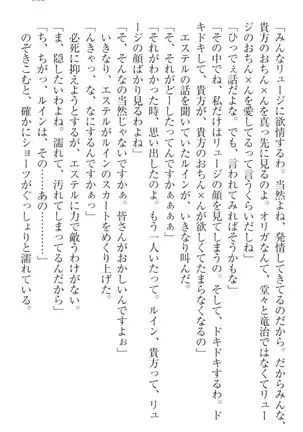 「みんなリュージに欲情するわ。当然よね、発情してきてるのだから。だからみんな、
貴方のおちん×んを真っ先に見るのよ。オリガなんて、堂々と竜治ではなくてリュー
ジのおちん×んを愛してるって言うくらいだしね」
「ひっでえ話だよなぁ。でも、言われてみればそうかもな」
「その中でね、私だけはリュージの顔を見てしまうの。そして、ドキドキする。ド
キドキして、貴方が、貴方のおちん×んが欲しくてたまらなくなるの」
「そ、それがどーしたってんですかぁぁぁぁ」
エステルの話を聞いていたルインが、いきなり叫んだ。
「それがね、貴方を見た時、思い出したのよ。もう一人いたって。ルイン、貴方って、リュ
ージの顔ばかり見るわよね」
「そ、そんなの当然じゃないですかぁ。皆さんがおかしいんですよぉ」
いきなり、エステルがルインのスカートをめくり上げた。
「んきゃっ、な、なにするんですかぁっ」
必死に抑えようとするが、エステルに力で敵うわけがない。
「ま、隠したいわよね。濡れて、汚れてしまってるんだから」
「ち、ちがっ、ルインは、その……あの…………」
のぞきこむと、確かにショーツがぐっしょりと濡れている。